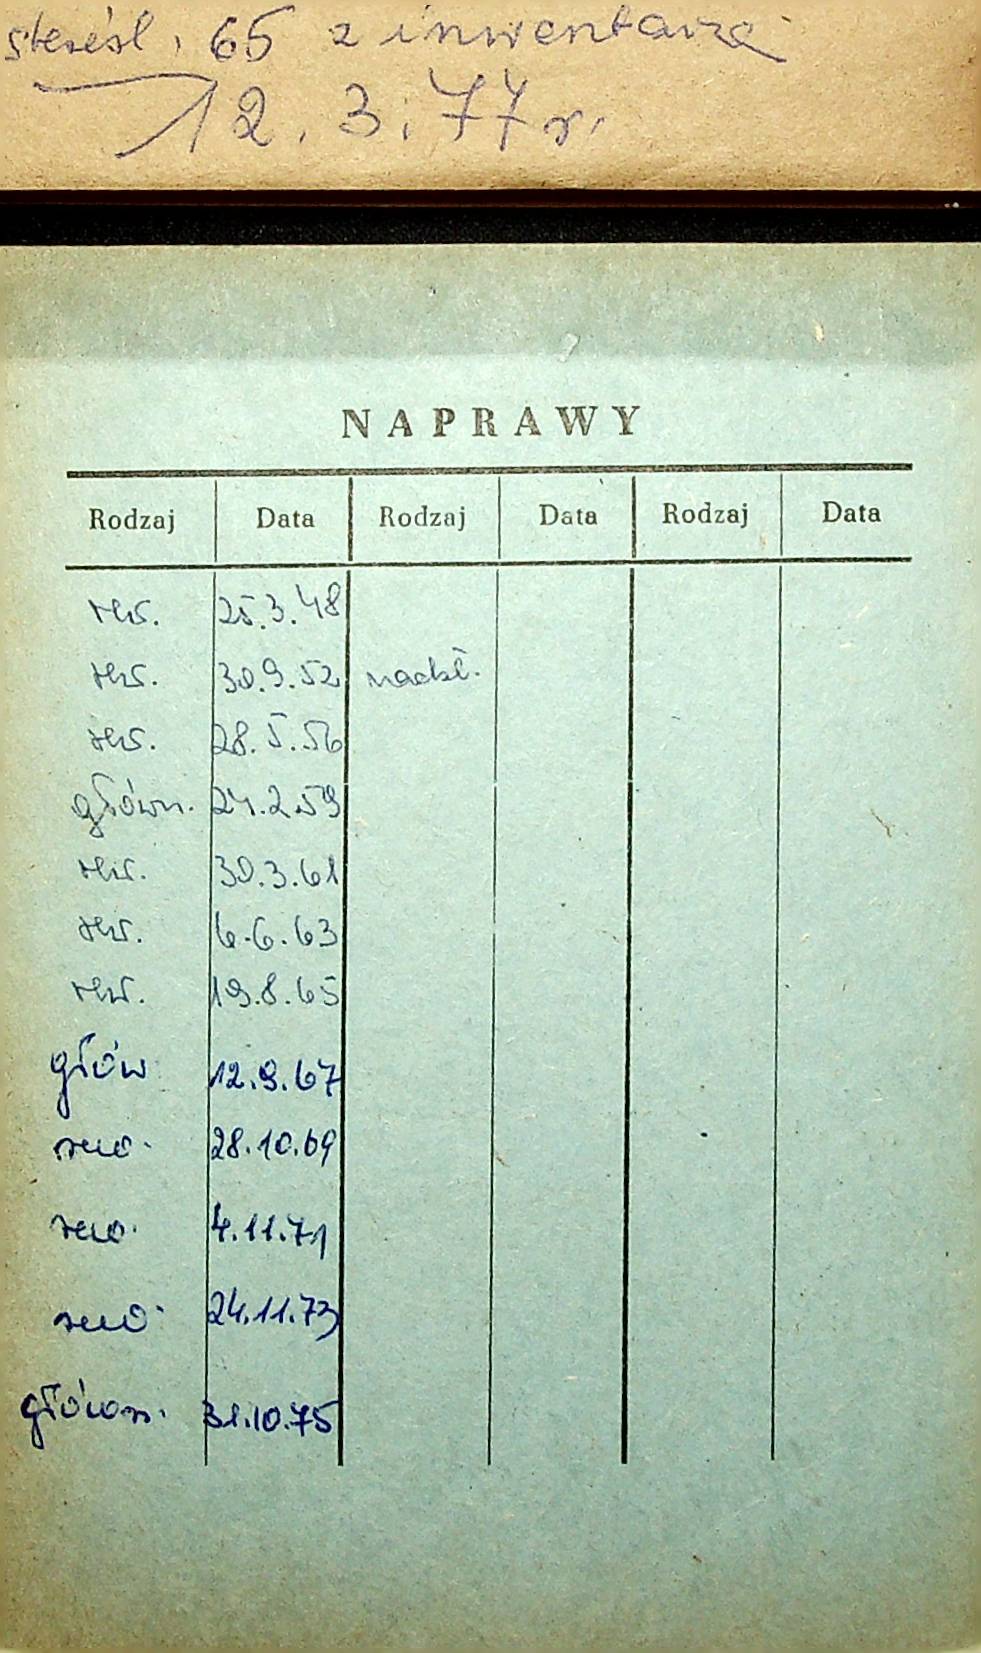 skreśl. 65 z inwentarza
12.3.77 r.
NAPRAWY
Rodzaj Data Rodzaj Data Rodzaj Data
rew. 25.3.48
rew. 30.9.52
rew. 28.5.56
główn. 24.2.59
rew. 30.3.61
rew. 6.6.63
rew. 19.8.65
głów 12.9.67
rew. 28.10.69
rew. 4.11.71
rew. 24.11.73
główn. 31.10.75